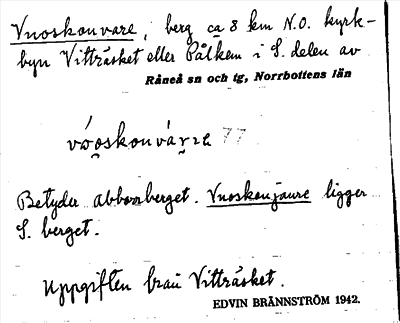 Vuoskonvare, berg ca 8 km N.O. kyrk-
byn Vitträsket eller Pålkem i S. delen av
Råneå sn och tg, Norrbottens län
77
Betyder abborrberget. Vuoskonjaure ligger
S. berget.
Uppgiften från Vitträsket.
EDVIN BRÄNNSTRÖM 1942.